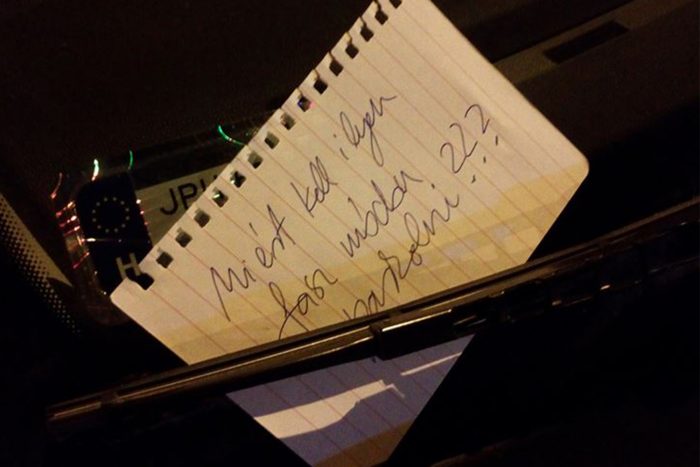 Miért kell ilyen
fasz módon ???
parkolni...
H
JPU